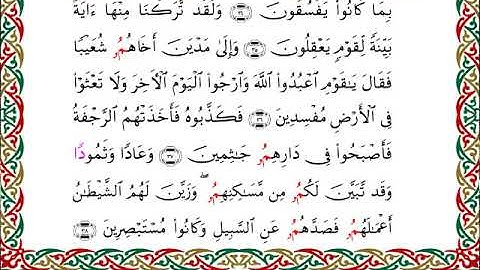 بِمَا كَانُوا۟ يَفْسُقُونَ ۝٣٤ وَلَقَد تَّرَكْنَا مِنْهَا ءَايَةً
بَيِّنَةً لِّقَوْمٍ يَعْقِلُونَ ۝٣٥ وَإِلَىٰ مَدْيَنَ أَخَاهُمُۥ شُعَيْبًا
فَقَالَ يَـٰقَوْمِ ٱعْبُدُوا۟ ٱللَّهَ وَٱرْجُوا۟ ٱلْيَوْمَ ٱلْـَٔاخِرَ وَلَا تَعْثَوْا۟
فِى ٱلْأَرْضِ مُفْسِدِينَ ۝٣٦ فَكَذَّبُوهُ فَأَخَذَتْهُمُ ٱلرَّجْفَةُ
فَأَصْبَحُوا۟ فِى دَارِهِمُۥ جَـٰثِمِينَ ۝٣٧ وَعَادًا وَثَمُودًا
وَقَد تَّبَيَّنَ لَكُمُۥ مِن مَّسَـٰكِنِهِمُۥ ۖ وَزَيَّنَ لَهُمُ ٱلشَّيْطَـٰنُ
أَعْمَـٰلَهُمُۥ فَصَدَّهُمُۥ عَنِ ٱلسَّبِيلِ وَكَانُوا۟ مُسْتَبْصِرِينَ ۝٣٨